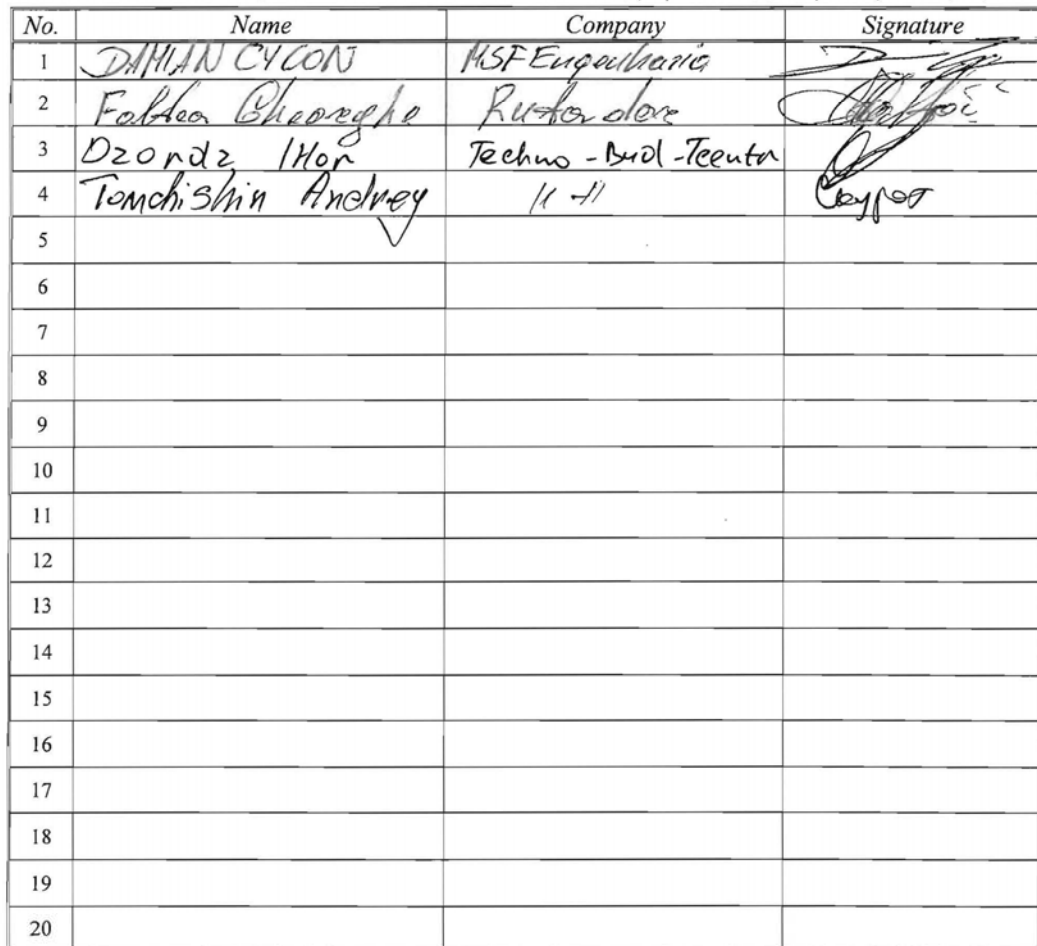 No. Name Company Signature
1 DAMIAN CYCON MSF Engenharia
2 Gheoreghe
3 Dzondz IHor Techno-Bud-
4 Tomchishin Andrey 11 -11
5
6
7
8
9
10
11
12
13
14
15
16
17
18
19
20